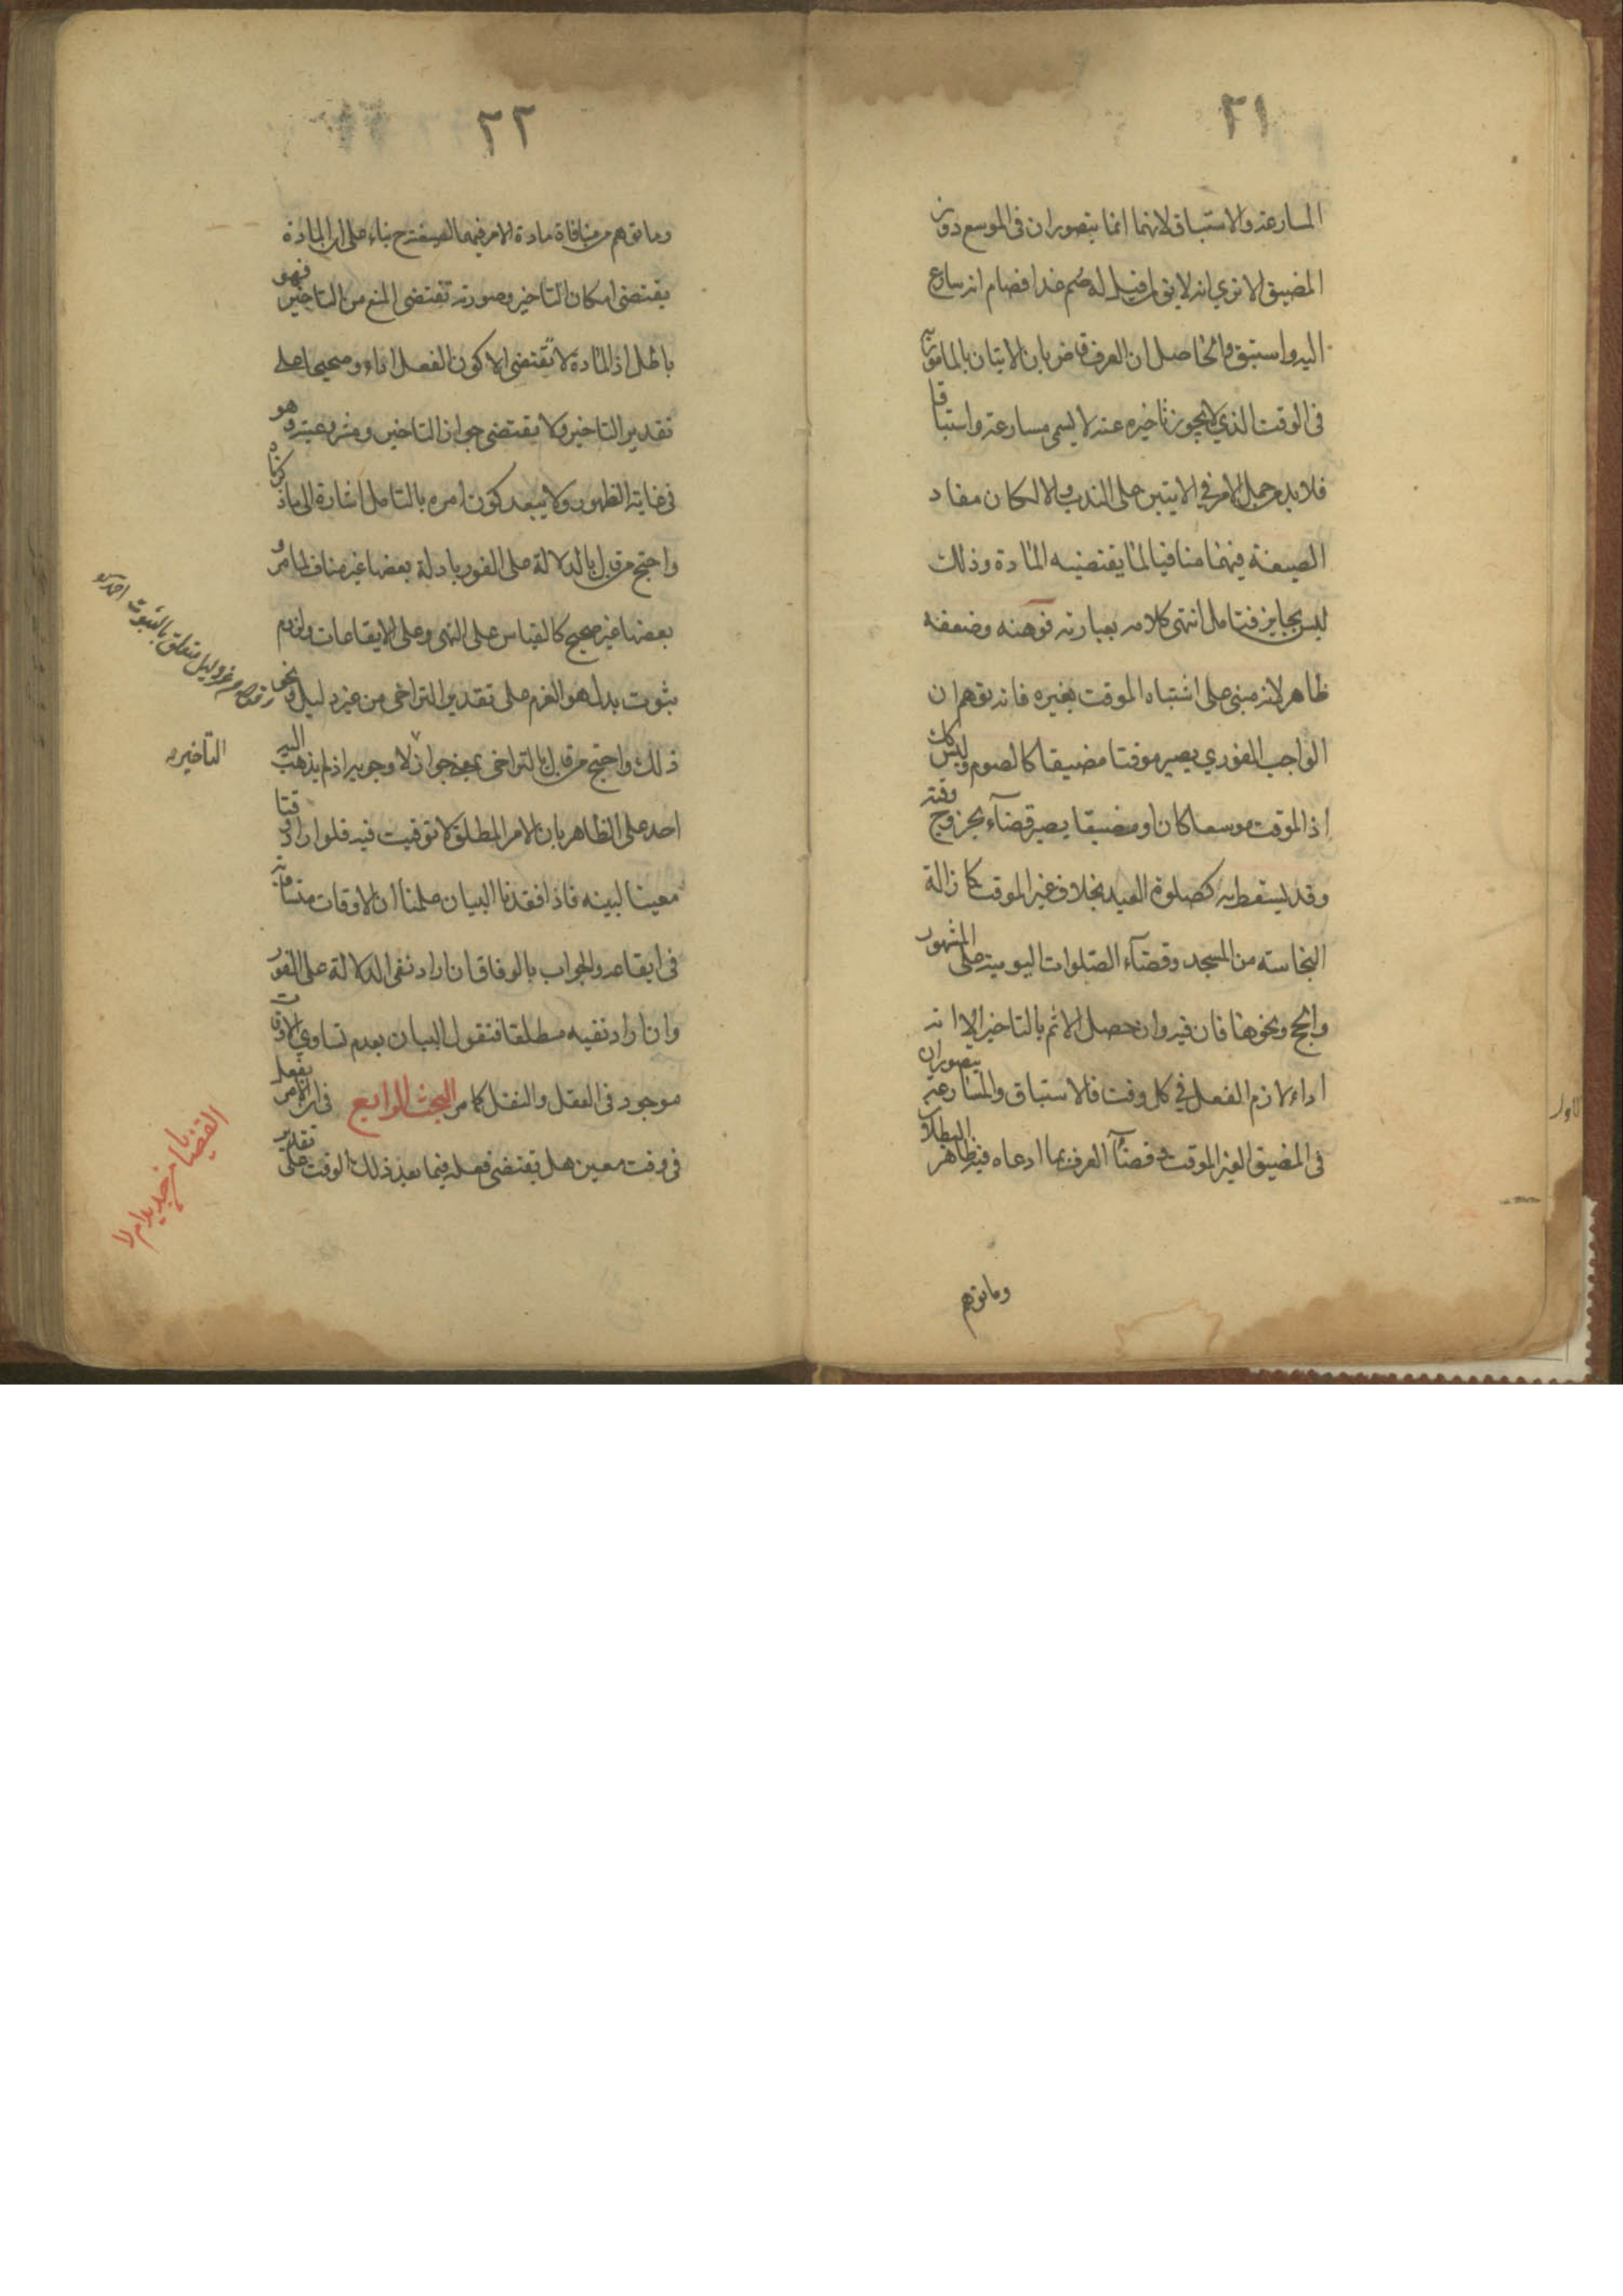 ٢١
المسارعة والاستباق لانهما انما يتصوران في الموسع دون
المضيق الا ترى انه لا يق لمن قيل له صم غدا فصام انه سارع
اليه واستبق والحاصل ان العرف قاض بان الاتيان بالمامور به
في الوقت الذي لا يجوز تاخيره عنه لا يسمى مسارعة واستباقا
فلا بد من حمل الامر في الايتين على الندب والا لكان مفاد
الصيغة فيهما منافيا لما يقتضيه المادة وذلك
ليس بجايز فتامل انتهى كلامه بعبارته فوهنه وضعفه
ظاهر لانه مبني على اشتباه الموقت بغيره فانه توهم ان
الواجب الفوري يصير موقتا مضيقا كالصوم وليس كك
اذ الموقت موسعا كان او مضيقا يصير قضآء بخروج وقته
وقد يسقط به كصلوة العيد بخلاف غير الموقت كازالة
النجاسة من المسجد وقضآء الصلوات اليومية على المشهور
والحج ونحوها فان فيه وان حصل الاثم بالتاخير الا انه
اداء لازم الفعل في كل وقت فالاستباق والمسارعة يتصوران
في المضيق الغير الموقت فقضآء العرف بما ادعاه فيه ظاهر البطلان
وما توهم
٢٢
وما توهم من منافاة مادة الامر فيهما لصيغته ح بناء على ان المادة
يقتضي امكان التاخير وصورته تقتضي المنع من التاخير فهو
باطل اذ المادة لا تقتضي الا كون الفعل اداء وصحيحا على
تقدير التاخير ولا يقتضي جواز التاخير ومشروعيته وهو
في غاية الظهور ولا يبعد كون امره بالتامل اشارة الى ما ذكرناه
واحتج من قال بالدلالة على الفور بادلة بعضها غير مناف لما مر و
بعضها غير صحيح كالقياس على النهي وعلى الايقاعات ولزوم
ثبوت بدل هو العزم على تقدير التراخي من غير دليل ونحو
ذلك واحتج من قال بالتراخي بمعنى جوازه لا وجوبه اذ لم يذهب اليه
احد على الظاهر بان الامر المطلق لا توقيت فيه فلو اراد وقتا
معينا لبينه فاذا فقدنا البيان علمنا ان الاوقات متساوية
في ايقاعه والجواب بالوفاق ان اراد نفي الدلالة على الفور
وان اراد نفيه مطلقا فنقول البيان بعدم تساوي الاوقات
موجود في العقل والنقل كما مر البحث الرابع في ان الامر بفعل
في وقت معين هل يقتضي فعله فيما بعد ذلك الوقت على تقدير
قوله من غير دليل متعلق بالثبوت
التاخير
القضا بامر جديد ام لا